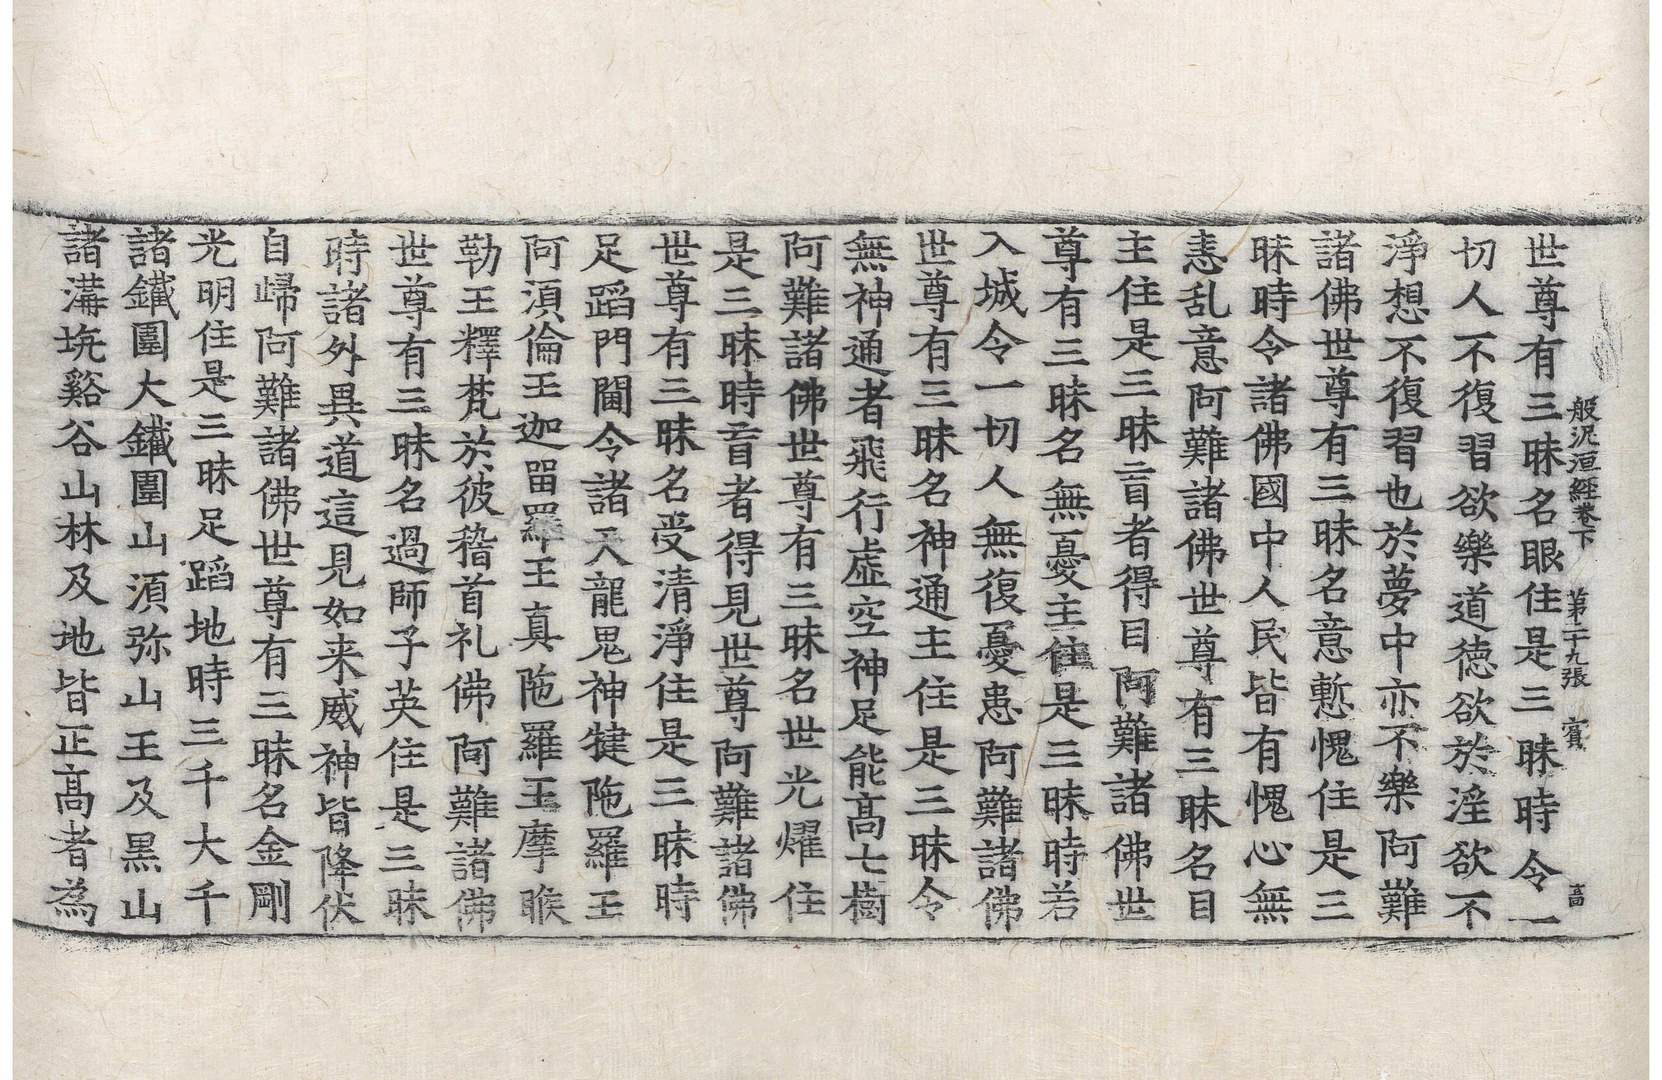 般泥洹經卷下　第二十九張　賓
世尊有三昧名眼住是三昧時令一
切人不復習欲樂道德欲於淫欲不
淨想不復習也於夢中亦不樂阿難
諸佛世尊有三昧名意慙愧住是三
昧時令諸佛國中人民皆有愧心無
恚乱意阿難諸佛世尊有三昧名目
主住是三昧盲者得目阿難諸佛世
尊有三昧名無憂主住是三昧時若
入城令一切人無復憂患阿難諸佛
世尊有三昧名神通主住是三昧令
無神通者飛行虛空神足能高七樹
阿難諸佛世尊有三昧名世光燿住
是三昧時盲者得見世尊阿難諸佛
世尊有三昧名受清淨住是三昧時
足蹈門閫令諸天龍鬼神犍陁羅王
阿湏倫王迦留羅王真陁羅王摩睺
勒王釋梵於彼稽首礼佛阿難諸佛
世尊有三昧名過師子英住是三昧
時諸外異道這見如来威神皆降伏
自歸阿難諸佛世尊有三昧名金剛
光明住是三昧足蹈地時三千大千
諸鐵圍大鐵圍山湏弥山王及黒山
諸溝坑谿谷山林及地皆正高者為